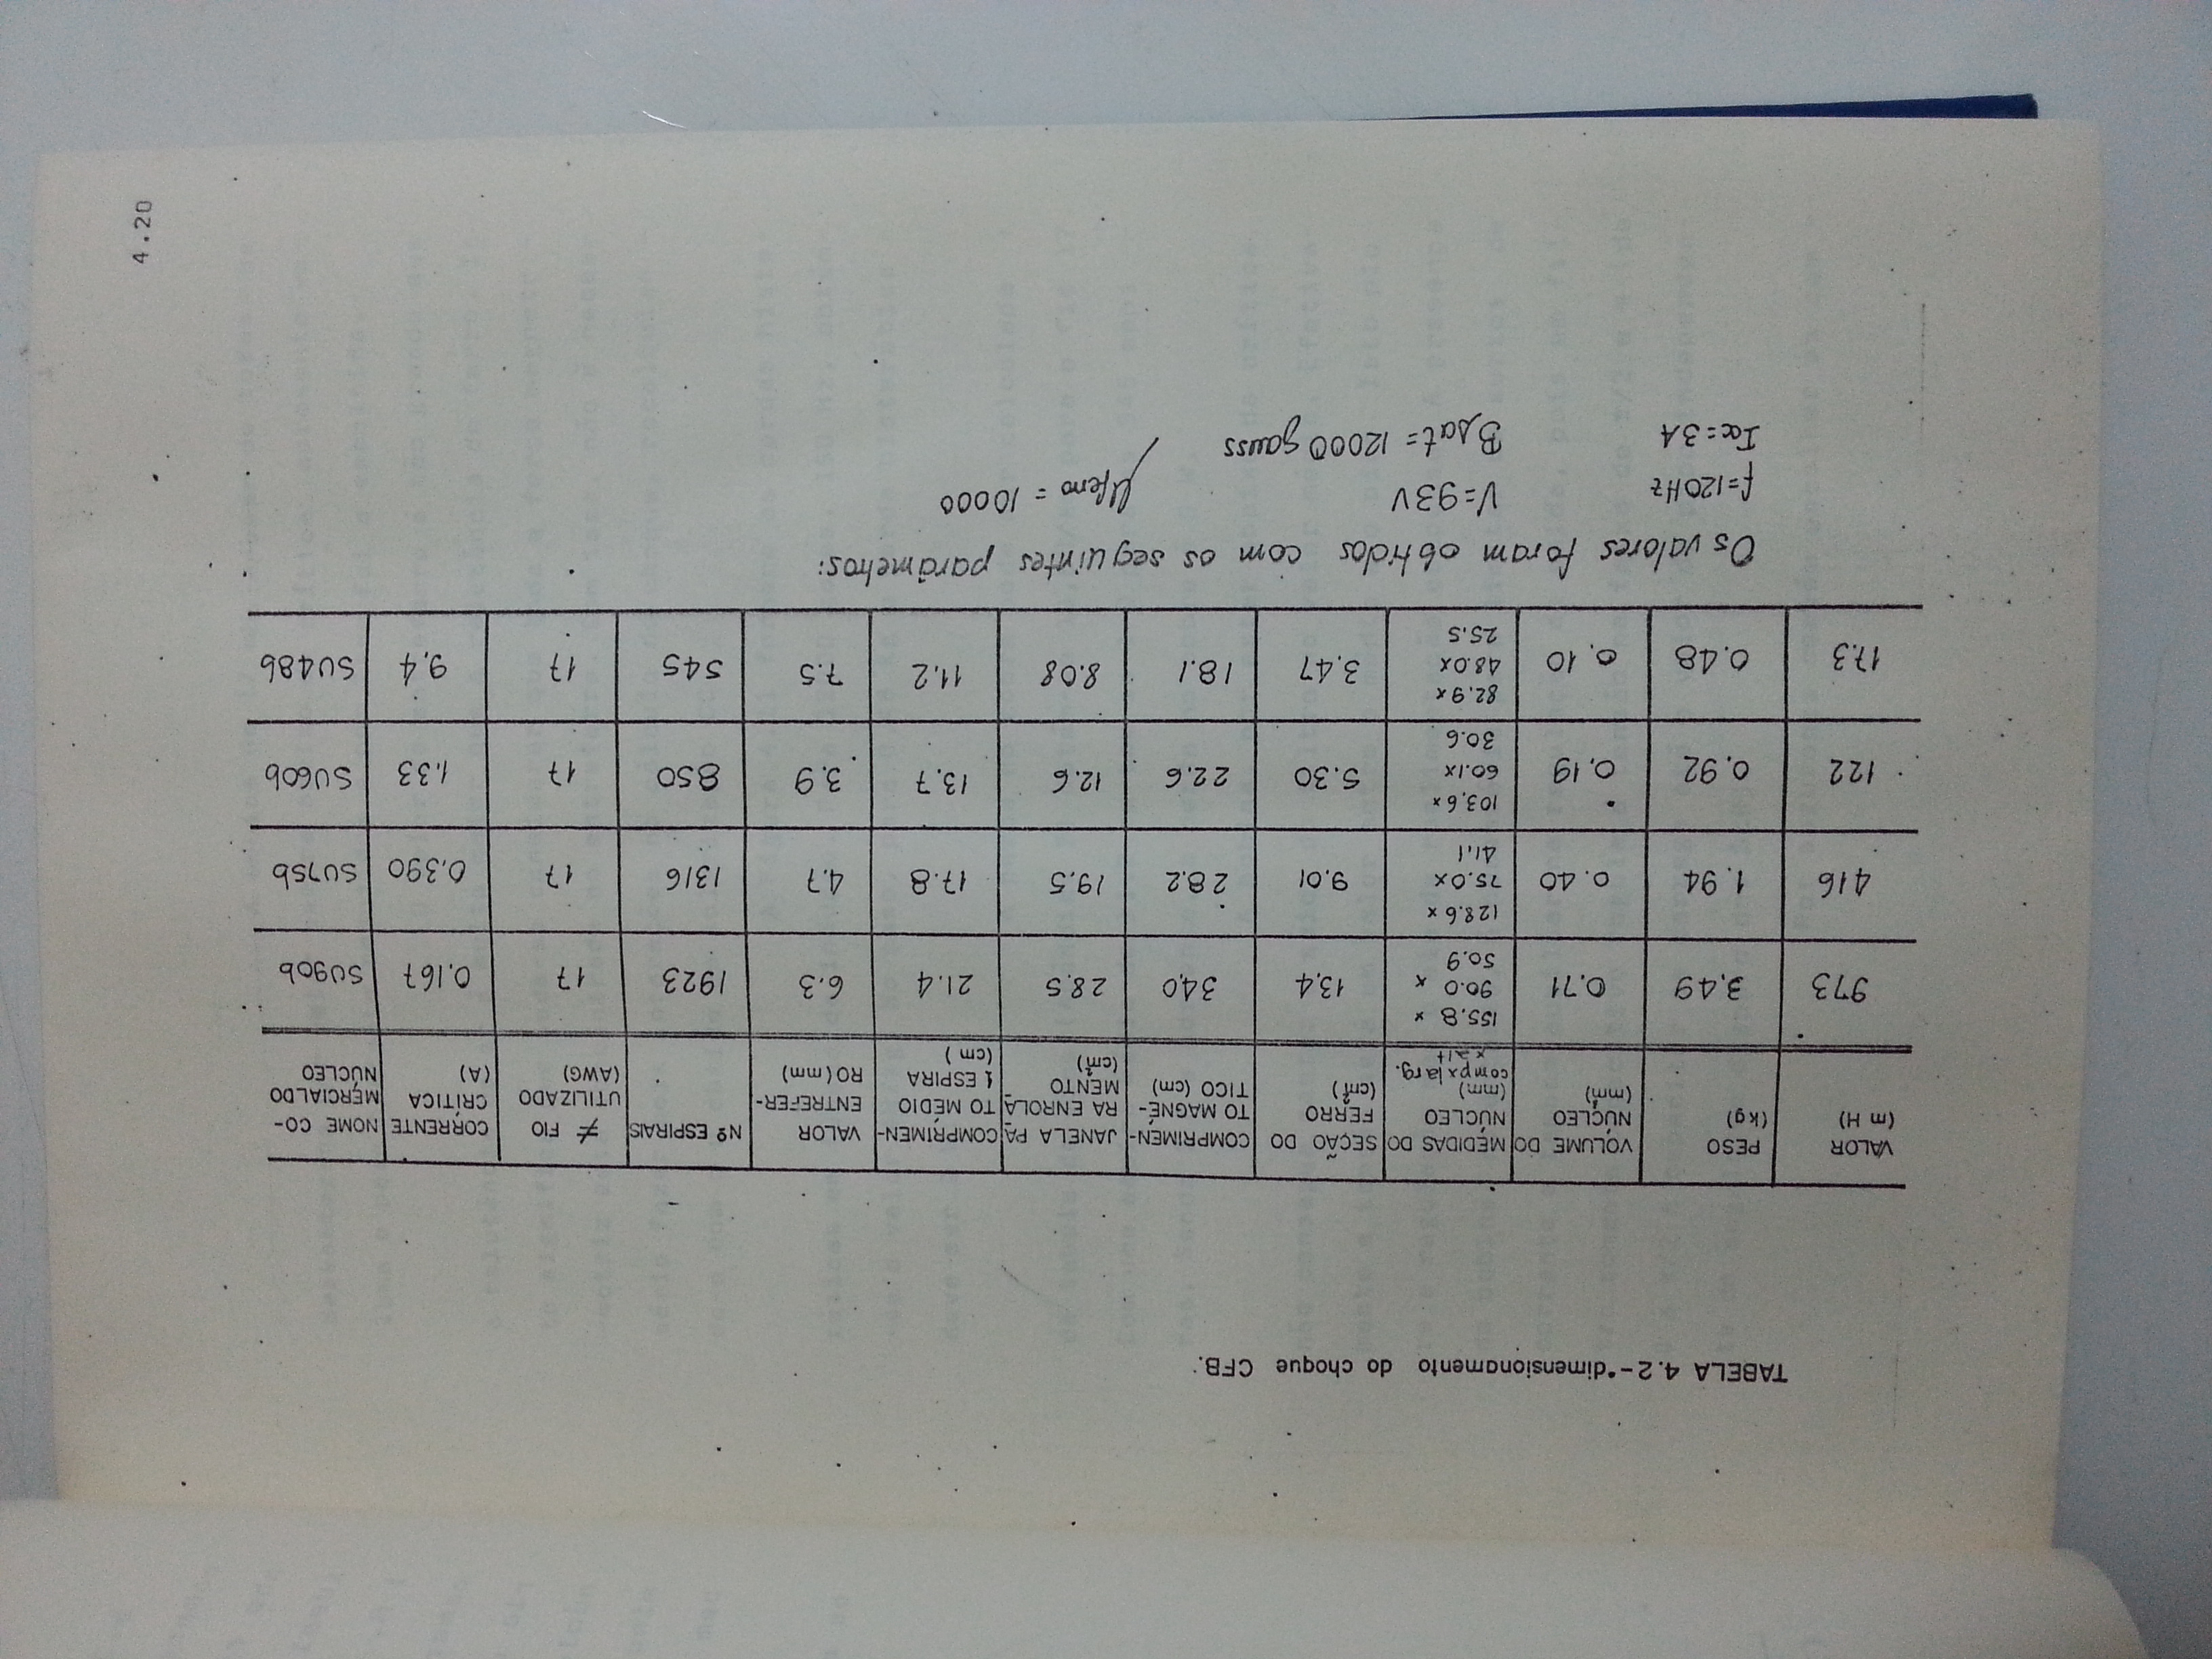 TABELA 4.2-dimensionamento do choque CFB.
VALOR (mH) | PESO (kg) | VOLUME DO NÚCLEO (mm³) | MEDIDAS DO NÚCLEO (mm) compxlarg. x alt | SEÇÃO DO FERRO (cm²) | COMPRIMEN-TO MAGNÉ-TICO (cm) | JANELA PA-RA ENROLA-MENTO (cm²) | COMPRIMEN-TO MEDIO 1 ESPIRA (cm) | VALOR ENTREFER-RO (mm) | Nº ESPIRAIS | ≠ FIO UTILIZADO (AWG) | CORRENTE CRÍTICA (A) | NOME CO-MERCIALDO NÚCLEO
973 | 3,49 | 0.71 | 155.8 x 90.0 x 50.9 | 13,4 | 34,0 | 28.5 | 21.4 | 6.3 | 1923 | 17 | 0,167 | SU90b
416 | 1.94 | 0.40 | 128.6 x 75.0x 41,1 | 9,01 | 28.2 | 19.5 | 17.8 | 4.7 | 1316 | 17 | 0.390 | SU75b
122 | 0.92 | 0,19 | 103,6x 60.1x 30.6 | 5.30 | 22.6 | 12.6 | 13.7 | 3.9 | 850 | 17 | 1.33 | SU60b
17.3 | 0.48 | 0,10 | 82.9x 48.0x 25.5 | 3.47 | 18.1 | 8.08 | 11.2 | 7.5 | 545 | 17 | 9.4 | SU48b
Os valores foram obtidos com os seguintes parâmetros:
f=120Hz V=93V μferro = 10000
Icc=3A Bsat = 12000 gauss
4.20